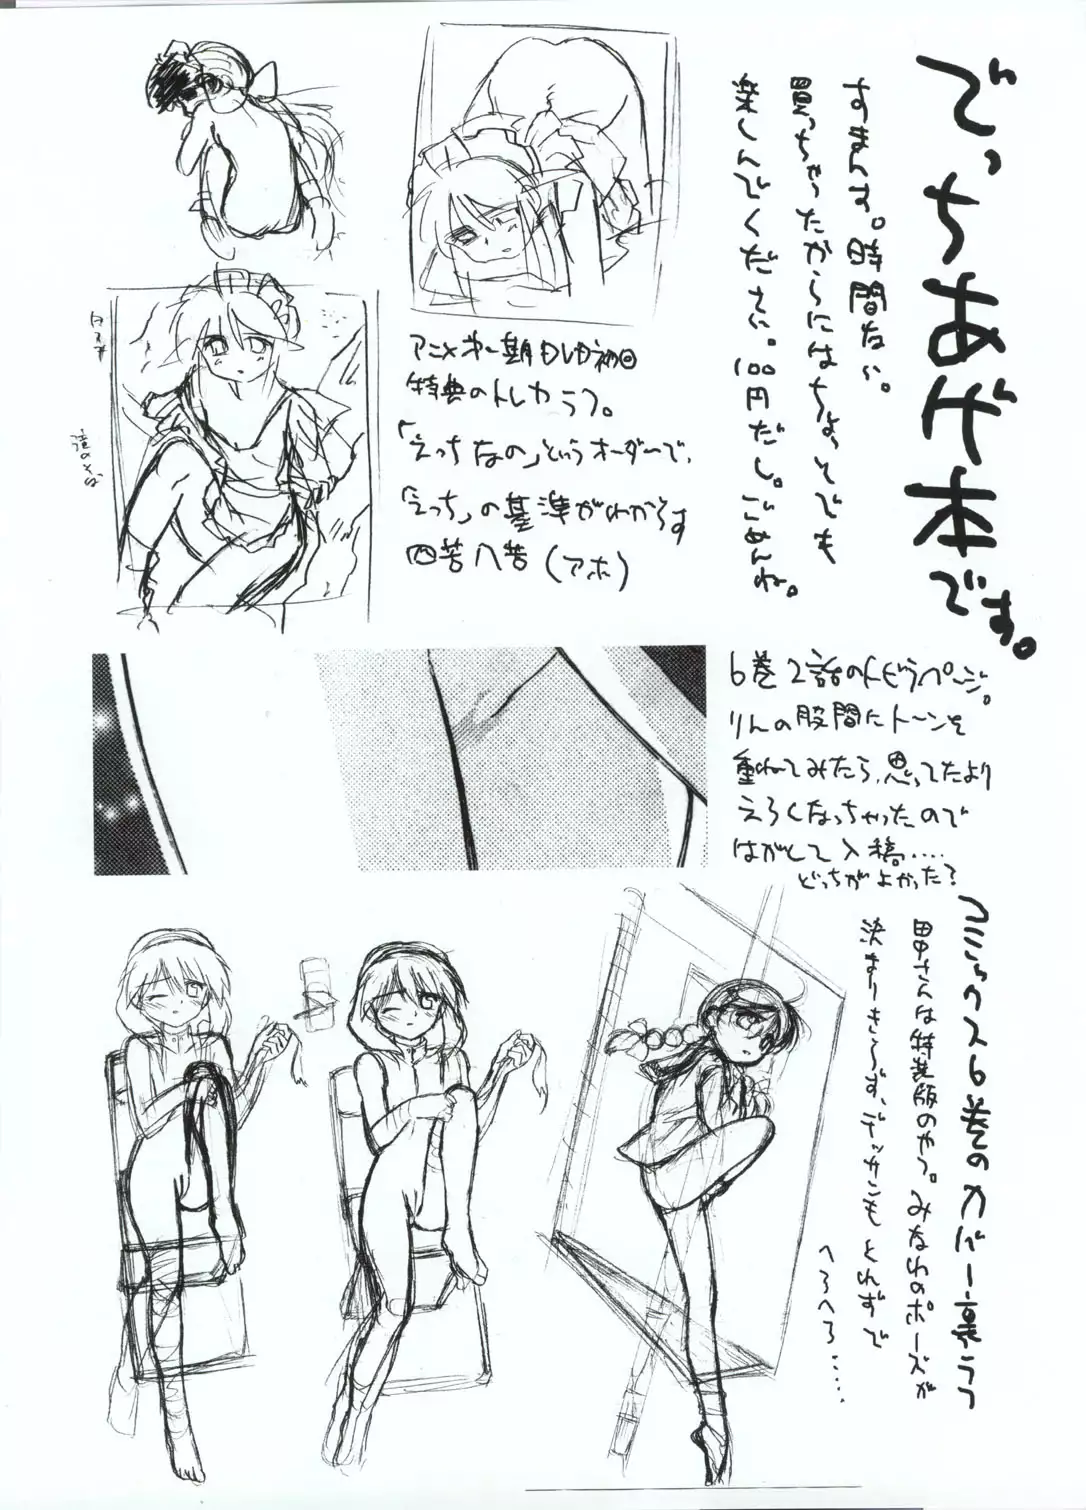 でっちあげ本です。
すまんす。時間ない。
買っちゃったからにはちょっとでも
楽しんでください。100円だし。ごめんね。
アニメ第一期もしか初回
特典のトレカラフ。
「えっちなの」というオーダーで、
「えっち」の基準がわからず
四苦八苦(アホ)
滝のそば
6巻2話のトビラページ。
りんの股間にトーンを
重ねてみたら、思ってたより
えろくなっちゃったので
はがして入稿。....
どっちがよかった?
コミックス6巻のカバー裏ラフ
田中さんは特装版のやつ。みなわのポーズが
決まりきらず、デッサンもとれずで
へろへろ.....